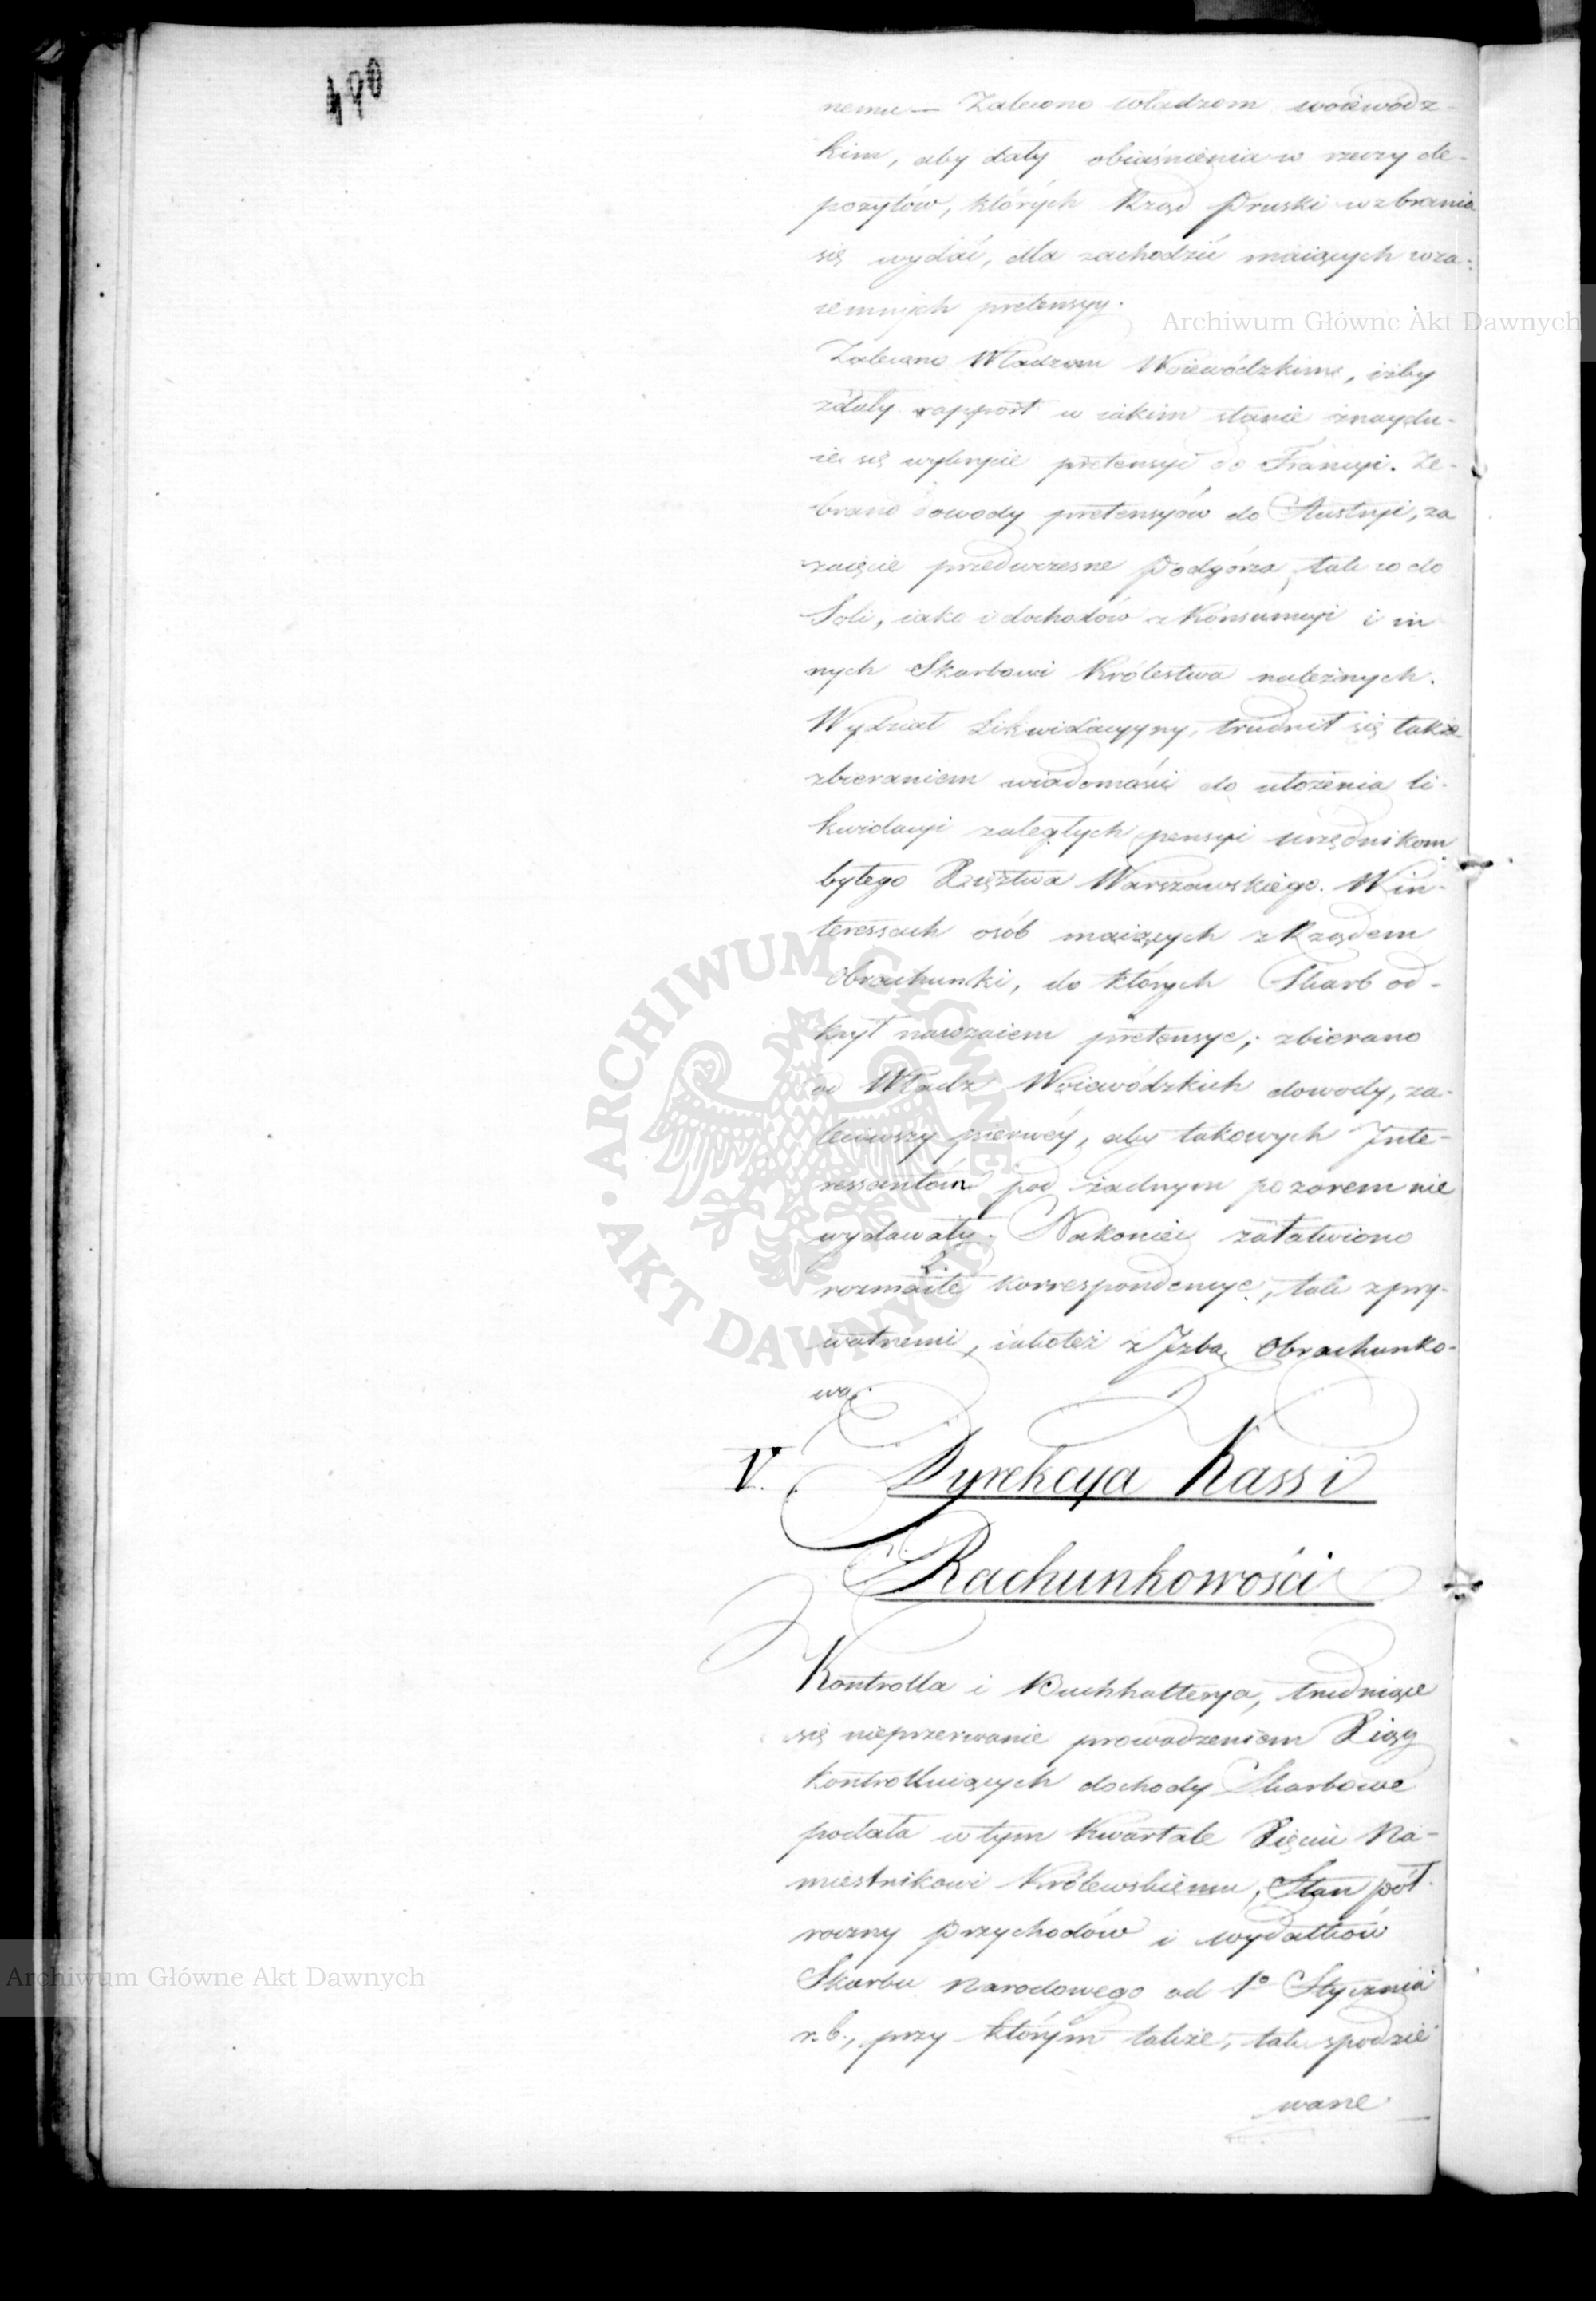 490
nemu — Zalecono Władzom wojewódz-
kim, aby dały obiaśnienia w rzeczy de-
pozytów, których Rząd Pruski wzbrania
się wydać, dla zachodzić maiących wza-
iemnych pretensyy.
Archiwum Główne Akt Dawnych
Zalecono Władzom Woiewódzkim, iżby
zdały rapport w iakim stanie znaydu-
ie się wybycie pretensyi do Francyi. Ze-
brano dowody pretensyów do Austryi, za
zaięcie przedwczesne Podgórza, tak co do
Soli, iako i dochodów z Konsumcyi i in
nych Skarbowi Królestwa należnych.
Wydział Likwidacyyny, trudnił się także
zbieraniem wiadomości do ułożenia li-
kwidacyi zaległych pensyi urzędnikom
byłego Xięztwa Warszawskiego. W in-
teressach osób maiących z Rządem
Obrachunki, do których Skarb od-
krył nawzaiem pretensye, zbierano
od Władz Woiewódzkich dowody, za-
leciwszy pierwéy, aby takowych Inte-
ressantom pod żadnym pozorem nie
wydawały. Nakoniec załatwiono
rozmaite korrespondencye, tak z pry-
watnemi, iakoteż z Izbą Obrachunko-
wą.
ARCHIWUM GŁÓWNE AKT DAWNYCH
V. Dyrekcya Kass i
Rachunkowości
Kontrolla i Buchhalterya, trudniące
się nieprzerwanie prowadzeniem Xiąg
kontrolluiących dochody Skarbowe
podała w tym kwartale Xięciu Na-
miestnikowi Królewskiemu, Stan pół-
roczny przychodów i wydatków
Archiwum Główne Akt Dawnych
Skarbu Narodowego od 1º Stycznia
r.b., przy którym także, tak spodzie
wane